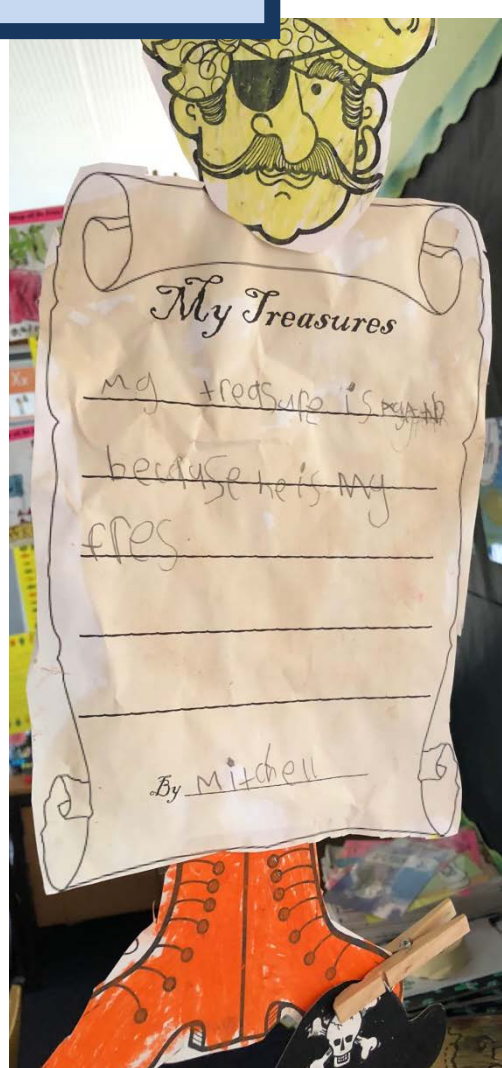 My Treasures
my treasure is
because he is my
fres.
By Mitchell